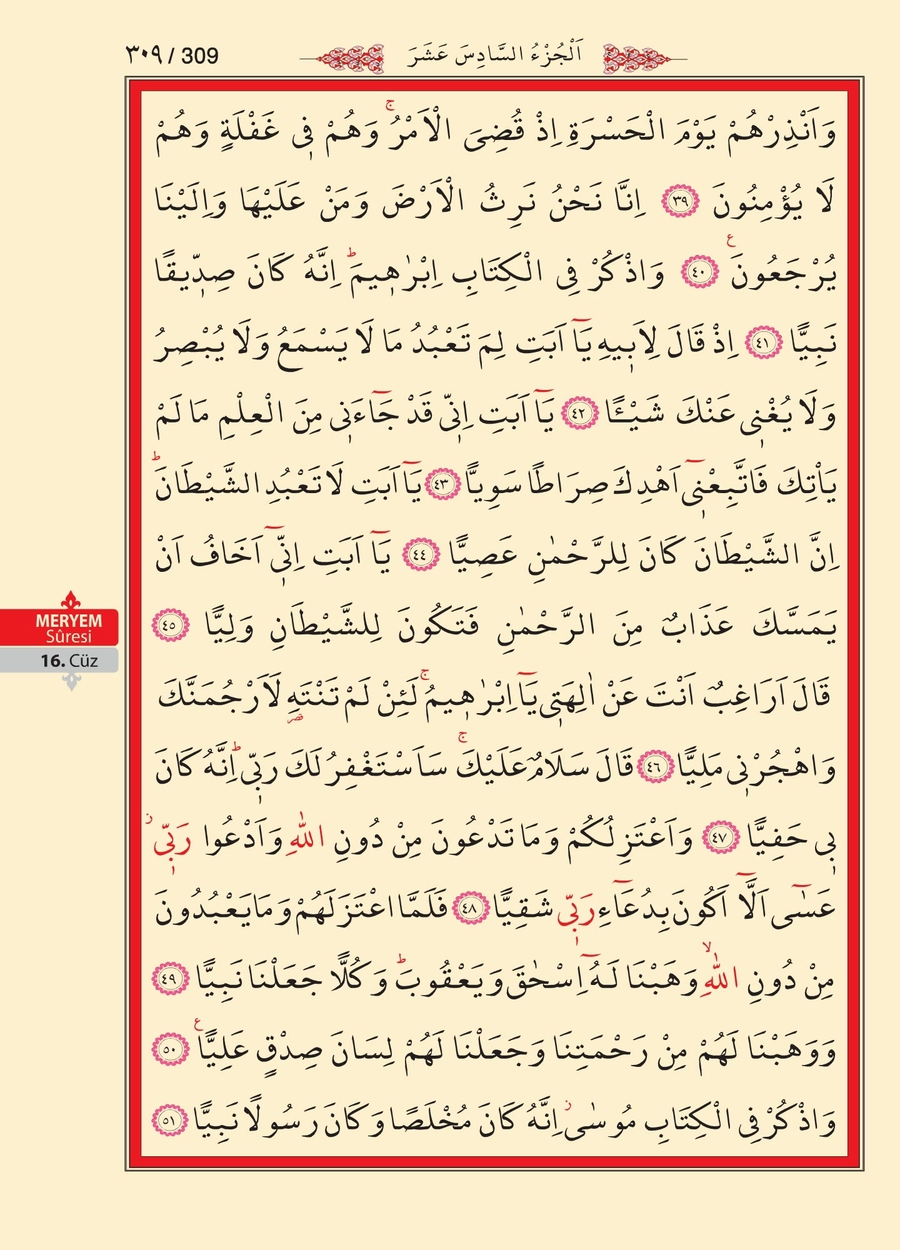 ٣٠٩ / 309
اَلْجُزْءُ السَّادِسَ عَشَرَ
وَاَنْذِرْهُمْ يَوْمَ الْحَسْرَةِ اِذْ قُضِىَ الْاَمْرُۚ وَهُمْ ف۪ى غَفْلَةٍ وَهُمْ
لَا يُؤْمِنُونَ ﴿٣٩﴾ اِنَّا نَحْنُ نَرِثُ الْاَرْضَ وَمَنْ عَلَيْهَا وَاِلَيْنَا
يُرْجَعُونَ ع ﴿٤٠﴾ وَاذْكُرْ فِى الْكِتَابِ اِبْرٰه۪يمَۜ اِنَّهُ كَانَ صِدّ۪يقًا
نَبِيًّا ﴿٤١﴾ اِذْ قَالَ لِاَب۪يهِ يَٓا اَبَتِ لِمَ تَعْبُدُ مَا لَا يَسْمَعُ وَلَا يُبْصِرُ
وَلَا يُغْن۪ى عَنْكَ شَيْـًٔا ﴿٤٢﴾ يَٓا اَبَتِ اِنّ۪ى قَدْ جَٓاءَن۪ى مِنَ الْعِلْمِ مَا لَمْ
يَاْتِكَ فَاتَّبِعْن۪ٓى اَهْدِكَ صِرَاطًا سَوِيًّا ﴿٤٣﴾ يَٓا اَبَتِ لَا تَعْبُدِ الشَّيْطَانَۜ
اِنَّ الشَّيْطَانَ كَانَ لِلرَّحْمٰنِ عَصِيًّا ﴿٤٤﴾ يَٓا اَبَتِ اِنّ۪ٓى اَخَافُ اَنْ
يَمَسَّكَ عَذَابٌ مِنَ الرَّحْمٰنِ فَتَكُونَ لِلشَّيْطَانِ وَلِيًّا ﴿٤٥﴾
قَالَ اَرَاغِبٌ اَنْتَ عَنْ اٰلِهَت۪ى يَٓا اِبْرٰه۪يمُۚ لَئِنْ لَمْ تَنْتَهِ لَاَرْجُمَنَّكَ
وَاهْجُرْن۪ى مَلِيًّا ﴿٤٦﴾ قَالَ سَلَامٌ عَلَيْكَۚ سَاَسْتَغْفِرُ لَكَ رَبّ۪ىۜ اِنَّهُ كَانَ
ب۪ى حَفِيًّا ﴿٤٧﴾ وَاَعْتَزِلُكُمْ وَمَا تَدْعُونَ مِنْ دُونِ اللّٰهِ وَاَدْعُوا رَبّ۪ىۘ
عَسٰٓى اَلَّٓا اَكُونَ بِدُعَٓاءِ رَبّ۪ى شَقِيًّا ﴿٤٨﴾ فَلَمَّا اعْتَزَلَهُمْ وَمَا يَعْبُدُونَ
مِنْ دُونِ اللّٰهِۙ وَهَبْنَا لَهُٓ اِسْحٰقَ وَيَعْقُوبَۜ وَكُلًّا جَعَلْنَا نَبِيًّا ﴿٤٩﴾
وَوَهَبْنَا لَهُمْ مِنْ رَحْمَتِنَا وَجَعَلْنَا لَهُمْ لِسَانَ صِدْقٍ عَلِيًّا ع ﴿٥٠﴾
وَاذْكُرْ فِى الْكِتَابِ مُوسٰىۘ اِنَّهُ كَانَ مُخْلَصًا وَكَانَ رَسُولًا نَبِيًّا ﴿٥١﴾
MERYEM
Sûresi
16. Cüz